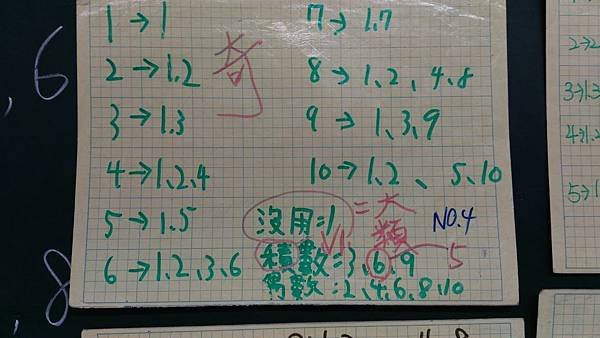 1→1
2→1.2
3→1.3
4→1,2,4
5→1.5
6→1,2,3,6
奇
7→1.7
8→1、2、4.8
9→1,3,9
10→1.2、5.10
沒用:1
=大類
NO.4
積數=3,6,9
5
偶數=2、4、6、8、10
,6
,8
2→2
3→1.3
4→1.2
5→1